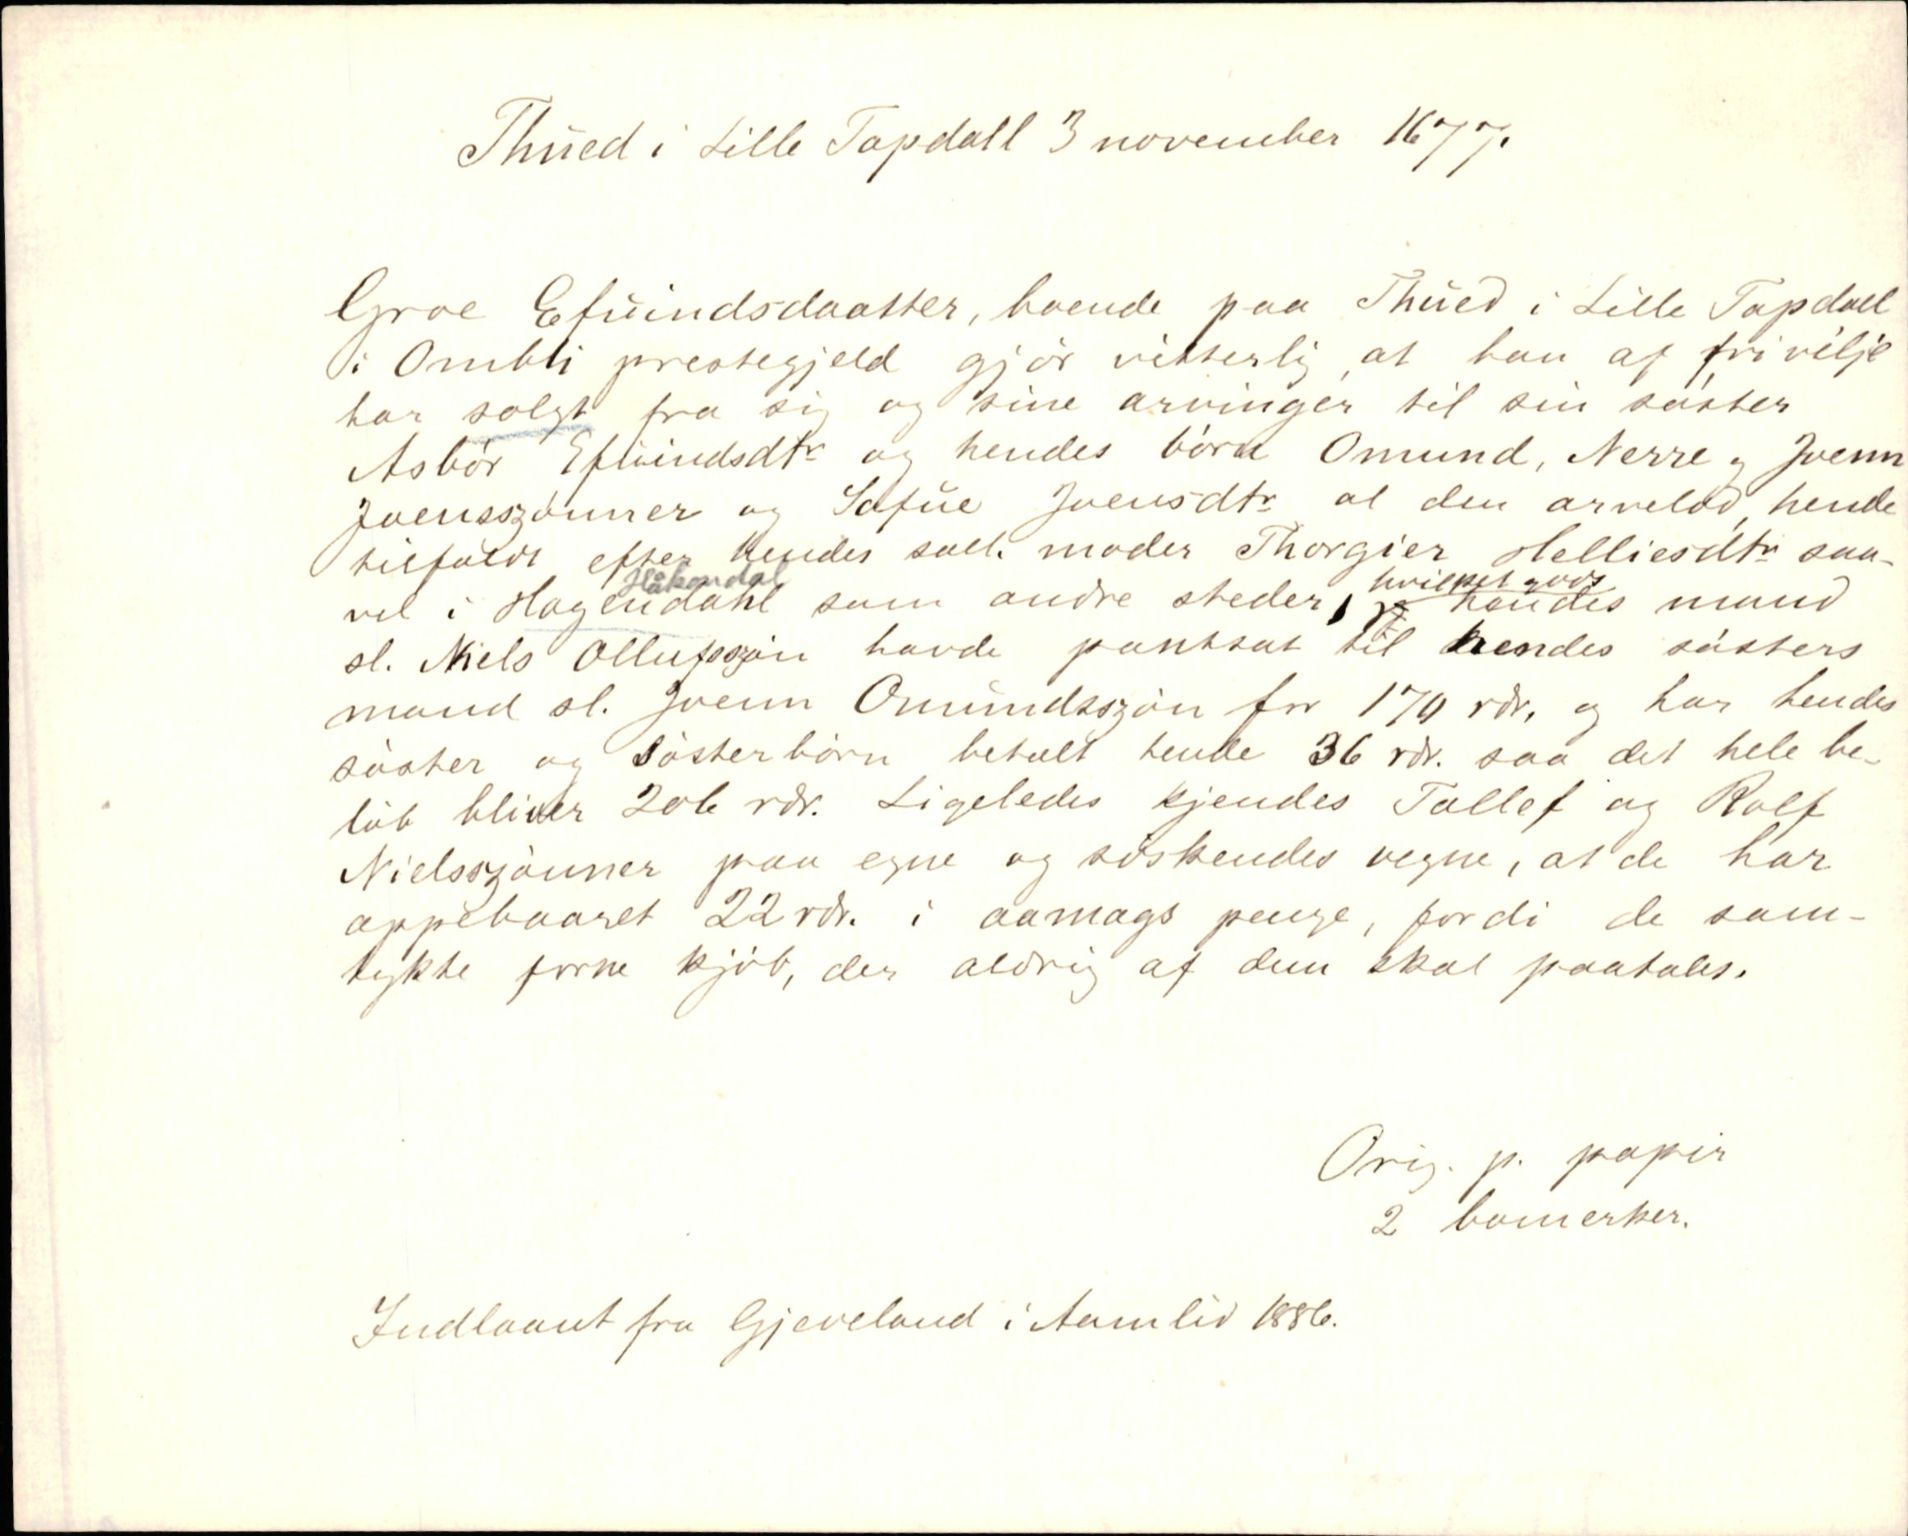 Thued i Lille Topdall 3 november 1677.
Groe Efuindsdaatter, boende paa Thued i Lille Topdall
i Ombli prestegjeld gjör vitterlig, at hun af fri vilje
har solgt fra sig og sine arvinger til sin söster
Asbör Efuindsdtr og hendes börn Omund, Nerre og Joenn
Joensszönner og Safue Joensdtr al den arvelod, hende
tilfaldt efter hendes sall. moder Thorgier Helliesdtr saa-
Håkendal hvilket gods
vel i Hagendahl som andre steder, hendes mand
sl. Niels Ollufsszön havde pantsat til hendes sösters
mand sl. Joenn Omundsszön for 170 rdr. og har hendes
söster og sösterbörn betalt hende 36 rdr. saa det hele be-
löb bliver 206 rdr. Ligeledes kjendes Tallef og Rolf
Nielsszönner paa egne og söskendes vegne, at de har
oppebaaret 22 rdr. i aamags penge, fordi de sam-
tykte forne kjöb, der aldrig af dem skal paatales.
Orig. p. papir
2 bomerker.
Indlaant fra Gjeveland i Aamlid 1886.